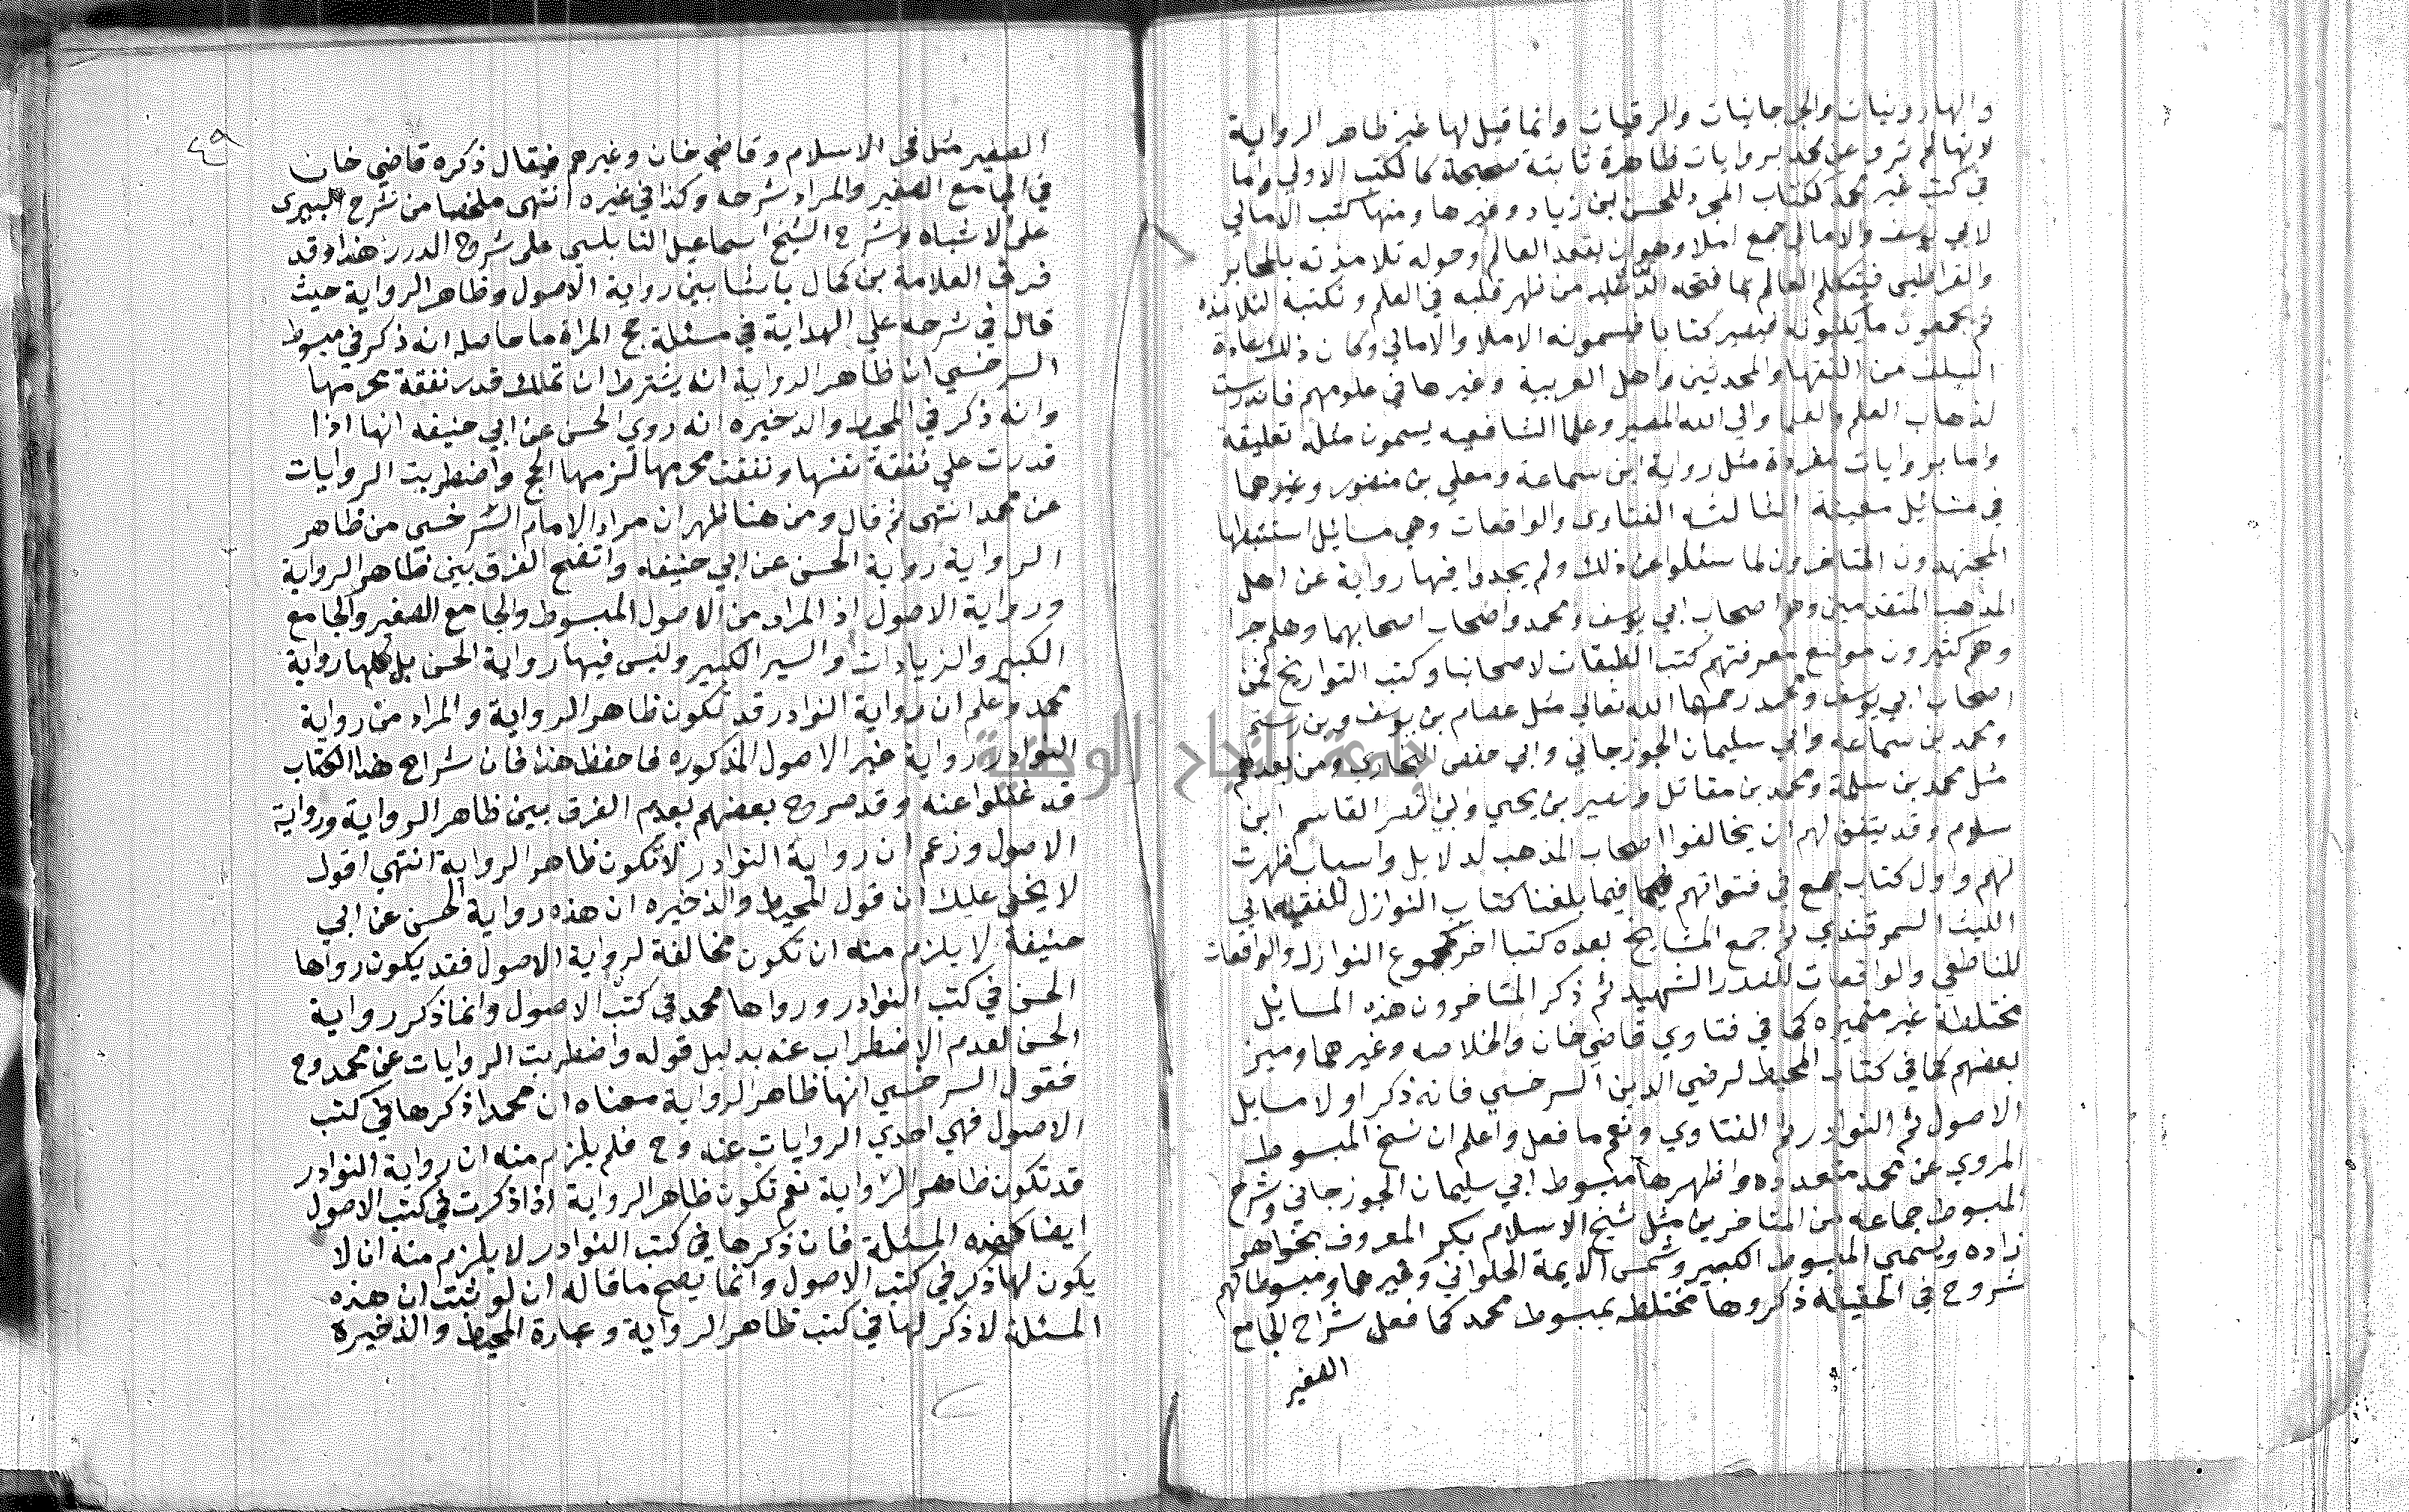 والهارونيات والجرجانيات والرقيات وانما قيل لها غير ظاهر الرواية
لانها لم ترو عن محمد بروايات ظاهرة ثابتة صحيحة كالكتب الاولي واما
في كتب غير محمد ككتاب المجرد للحسن بن زياد وغيرها ومنها كتب الامالي
لابي يوسف والامالي جمع املا وهو ان يقعد العالم وحوله تلامذته بالمحابر
والقراطيس فيتكلم العالم بما فتحه الله عليه من ظهر قلبه في العلم وتكتبه التلامذه
ثم يجمعون ما يكتبونه فيصير كتابا فيسمونه الاملا والامالي وكان ذلك عادة
السلف من الفقها والمحدثين واهل العربية وغيرها في علومهم فاندرست
لذهاب العلم والعلما والي الله المصير وعلما الشافعيه يسمون مثله تعليقة
واما بروايات مفردة مثل رواية ابن سماعة ومعلي بن منصور وغيرهما
في مسائل معينة الثالثه الفتاوى والواقعات وهي مسايل استنبطها
المجتهدون المتاخرون لما سئلوا عن ذلك ولم يجدوا فيها رواية عن اهل
المذهب المتقدمين وهم اصحاب ابي يوسف ومحمد واصحاب اصحابهما وهلم جرا
وهم كثيرون موضع معرفتهم كتب الطبقات لاصحابنا وكتب التواريخ فمن
اصحاب ابي يوسف ومحمد رحمهما الله تعالي مثل عصام بن يوسف وبن رستم
ومحمد بن سماعه وابي سليمان الجوزجاني وابي حفص البخاري ومن بعدهم
مثل محمد بن سلمة ومحمد بن مقاتل ونصير بن يحيي وابي النصر القاسم ابن
سلام وقد يتفق لهم ان يخالفوا اصحاب المذهب لدلايل واسباب ظهرت
لهم واول كتاب جمع في فتواتهم فيما بلغنا كتاب النوازل للفقيه ابي
الليث السمرقندي ثم جمع المشايخ بعده كتبا اخر كمجموع النوازل والواقعات
للناطفي والواقعات للصدر الشهيد ثم ذكر المتاخرون هذه المسائل
مختلطة غير متميزه كما في فتاوي قاضي خان والخلاصه وغيرهما وميز
بعضهم كما في كتاب المحيط لرضي الدين السرخسي فانه ذكر اولا مسايل
الاصول ثم النوادر ثم الفتاوي ونعم ما فعل واعلم ان نسخ المبسوط
المروي عن محمد متعدده واظهرها مبسوط ابي سليمان الجوزجاني وشرح
المبسوط جماعه من المتاخرين مثل شيخ الاسلام بكر المعروف بخواهر
زاده ويسمي المبسوط الكبير وشمس الايمة الحلواني وغيرهما ومبسوطاتهم
شروح في الحقيقة ذكروها مختلطه بمبسوط محمد كما فعل شراح الجامع
الصغير
٤٩
الصغير مثل فخر الاسلام وقاضي خان وغيرهم فيقال ذكره قاضي خان
في الجامع الصغير والمراد شرحه وكذا في غيره انتهى ملخصا من شرح البيرى
على الاشباه وشرح الشيخ اسماعيل النابلسي على شرح الدرر هذا وقد
فرق العلامة بن كمال باشا بين رواية الاصول وظاهر الرواية حيث
قال في شرحه علي الهداية في مسئلة حج المراة ما حاصله انه ذكر في مبسوط
السرخسي ان ظاهر الرواية انه يشترط ان تملك قدر نفقة محرمها
وانه ذكر في المحيط والذخيره انه روي الحسن عن ابي حنيفه انها اذا
قدرت علي نفقة نفسها ونفقت محرمها لزمها الحج واضطربت الروايات
عن محمد انتهى ثم قال ومن هنا ظهر ان مراد الامام السرخسي من ظاهر
الرواية رواية الحسن عن ابي حنيفه واتضح الفرق بين ظاهر الرواية
ورواية الاصول اذ المراد من الاصول المبسوط والجامع الصغير والجامع
الكبير والزيادات والسير الكبير وليس فيها رواية الحسن بل كلها رواية
محمد وعلم ان رواية النوادر قد تكون ظاهر الرواية والمراد من رواية
النوادر رواية غير الاصول المذكوره فاحفظ هذا فان شراح هذا الكتاب
قد غفلوا عنه وقد صرح بعضهم بعدم الفرق بين ظاهر الرواية ورواية
الاصول وزعم ان رواية النوادر لا تكون ظاهر الرواية انتهي اقول
لا يخفي عليك ان قول المحيط والذخيره ان هذه رواية الحسن عن ابي
حنيفة لا يلزم منه ان تكون مخالفة لرواية الاصول فقد يكون رواها
الحسن في كتب النوادر ورواها محمد في كتب الاصول وانما ذكر رواية
الحسن لعدم الاضطراب عنه بدليل قوله واضطربت الروايات عن محمد وح
فقول السرخسي انها ظاهر الرواية معناه ان محمدا ذكرها في كتب
الاصول فهي احدي الروايات عنه وح فلم يلزم منه ان رواية النوادر
قد تكون ظاهر الرواية نعم تكون ظاهر الرواية اذا ذكرت في كتب الاصول
ايضا كهذه المسئلة فان ذكرها في كتب النوادر لا يلزم منه ان لا
يكون لها ذكر في كتب الاصول وانما يصح ما قاله ان لو ثبت ان هذه
المسئلة لا ذكر لها في كتب ظاهر الرواية وعبارة المحيط والذخيرة
جامعة النجاح الوطنية